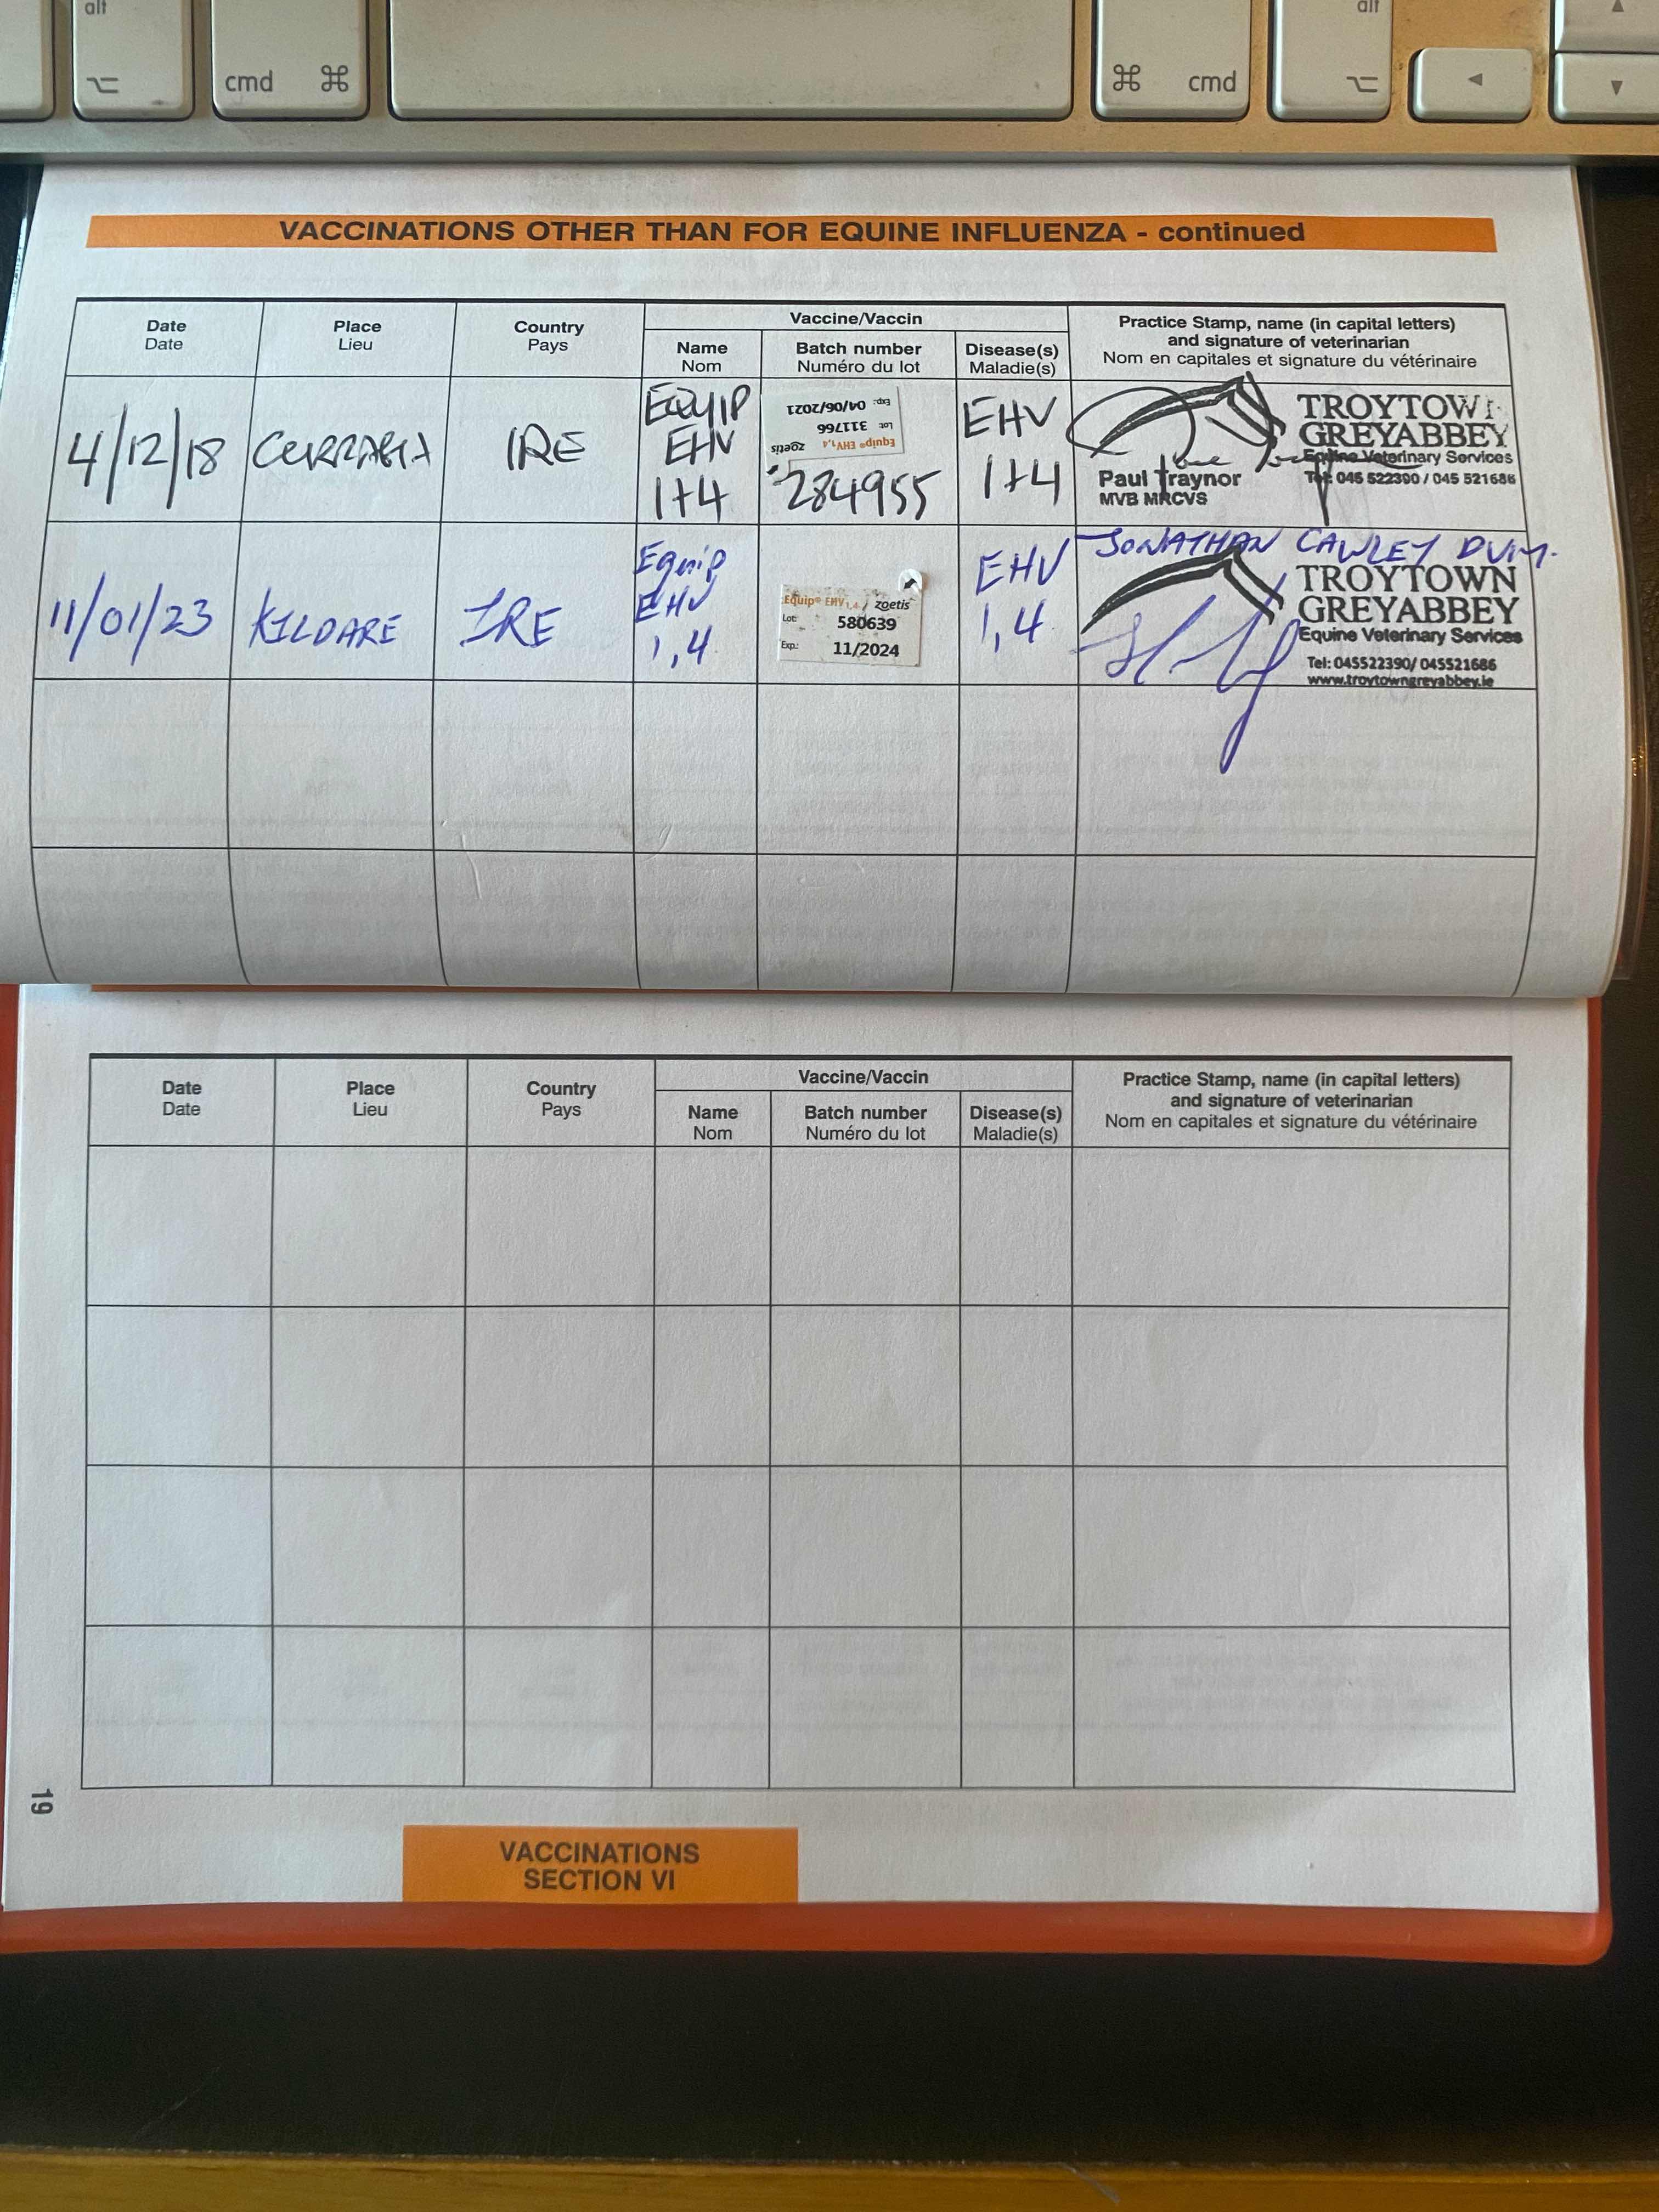 alt
alt
cmd ⌘
⌘ cmd
VACCINATIONS OTHER THAN FOR EQUINE INFLUENZA - continued
Date
Date
Place
Lieu
Country
Pays
Vaccine/Vaccin
Name
Nom
Batch number
Numéro du lot
Disease(s)
Maladie(s)
Practice Stamp, name (in capital letters)
and signature of veterinarian
Nom en capitales et signature du vétérinaire
4/12/18
CURRAGH
IRE
EQUIP
EHV
1+4
Equip® EHV1,4 zoetis
Lot: 311766
Exp: 04/06/2021
284955
EHV
1+4
TROYTOWN
GREYABBEY
Equine Veterinary Services
Tel: 045 522390 / 045 521686
Paul Traynor
MVB MRCVS
11/01/23
KILDARE
IRE
Equip
EHV
1,4
Equip® EHV1,4 / zoetis
Lot: 580639
Exp.: 11/2024
EHV
1,4
JONATHAN CAWLEY DVM.
TROYTOWN
GREYABBEY
Equine Veterinary Services
Tel: 045522390/ 045521686
www.troytowngreyabbey.ie
Date
Date
Place
Lieu
Country
Pays
Vaccine/Vaccin
Name
Nom
Batch number
Numéro du lot
Disease(s)
Maladie(s)
Practice Stamp, name (in capital letters)
and signature of veterinarian
Nom en capitales et signature du vétérinaire
19
VACCINATIONS
SECTION VI